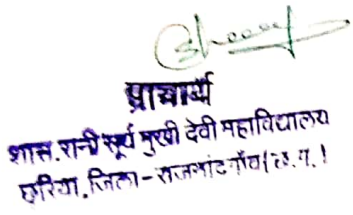 प्राचार्य
शास. रानी सूर्य मुखी देवी महाविद्यालय
छुरिया, जिला - राजनांदगाँव (छ.ग.)